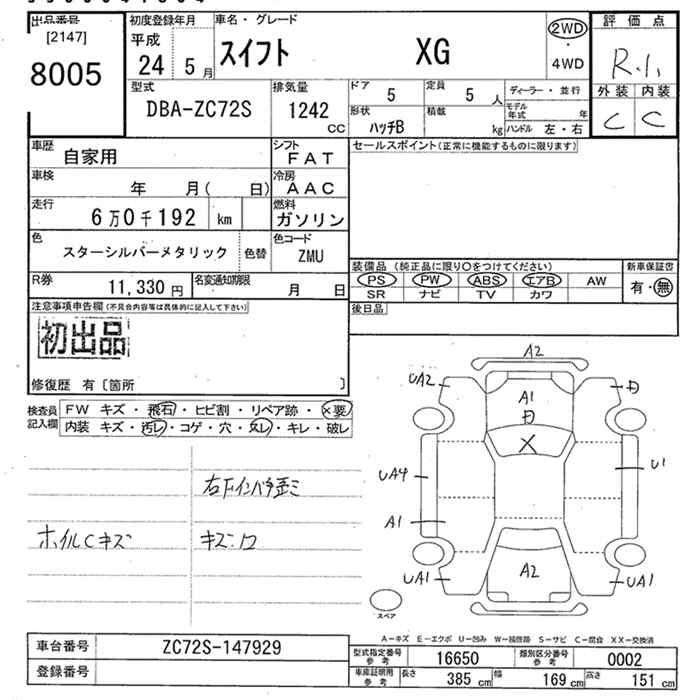 出品番号
[2147]
8005
初度登録年月
平成
24 5 月
車名・グレード
スイフト XG
2WD
・
4WD
評価点
R.1.
外装 内装
C C
型式
DBA-ZC72S
排気量
1242
CC
ドア 5
定員 5 人
ディーラー・並行
形状
ハッチB
積載
kg
モデル
年式 年
ハンドル 左・右
車歴
自家用
シフト
FAT
車検
年 月( 日)
冷房
AAC
走行
6万0千192 km
燃料
ガソリン
色
スターシルバーメタリック
色替
色コード
ZMU
R券
11,330 円
名変通知期限
月 日
セールスポイント(正常に機能するものに限ります)
装備品 (純正品に限り○をつけてください)
PS PW ABS エアB AW
SR ナビ TV カワ
新車保証書
有・無
後日品
注意事項申告欄(不具合内容等は具体的に記入して下さい)
初出品
修復歴 有〔箇所 〕
検査員
記入欄
FW キズ・飛石・ヒビ割・リペア跡・×要
内装 キズ・汚レ・コゲ・穴・スレ・キレ・破レ
ホイルCキズ
キズ.凹
A2
UA2
A1
X
UA4
U1
A1
UA1
A2
UA1
スペア
A−キズ E−エクボ U−凹み W−補修跡 S−サビ C−腐食 XX−交換済
車台番号 ZC72S-147929
登録番号
型式指定番号
参考
16650
類別区分番号
参考
0002
車庫証明用
参考
長さ 385 cm
幅 169 cm
高さ 151 cm